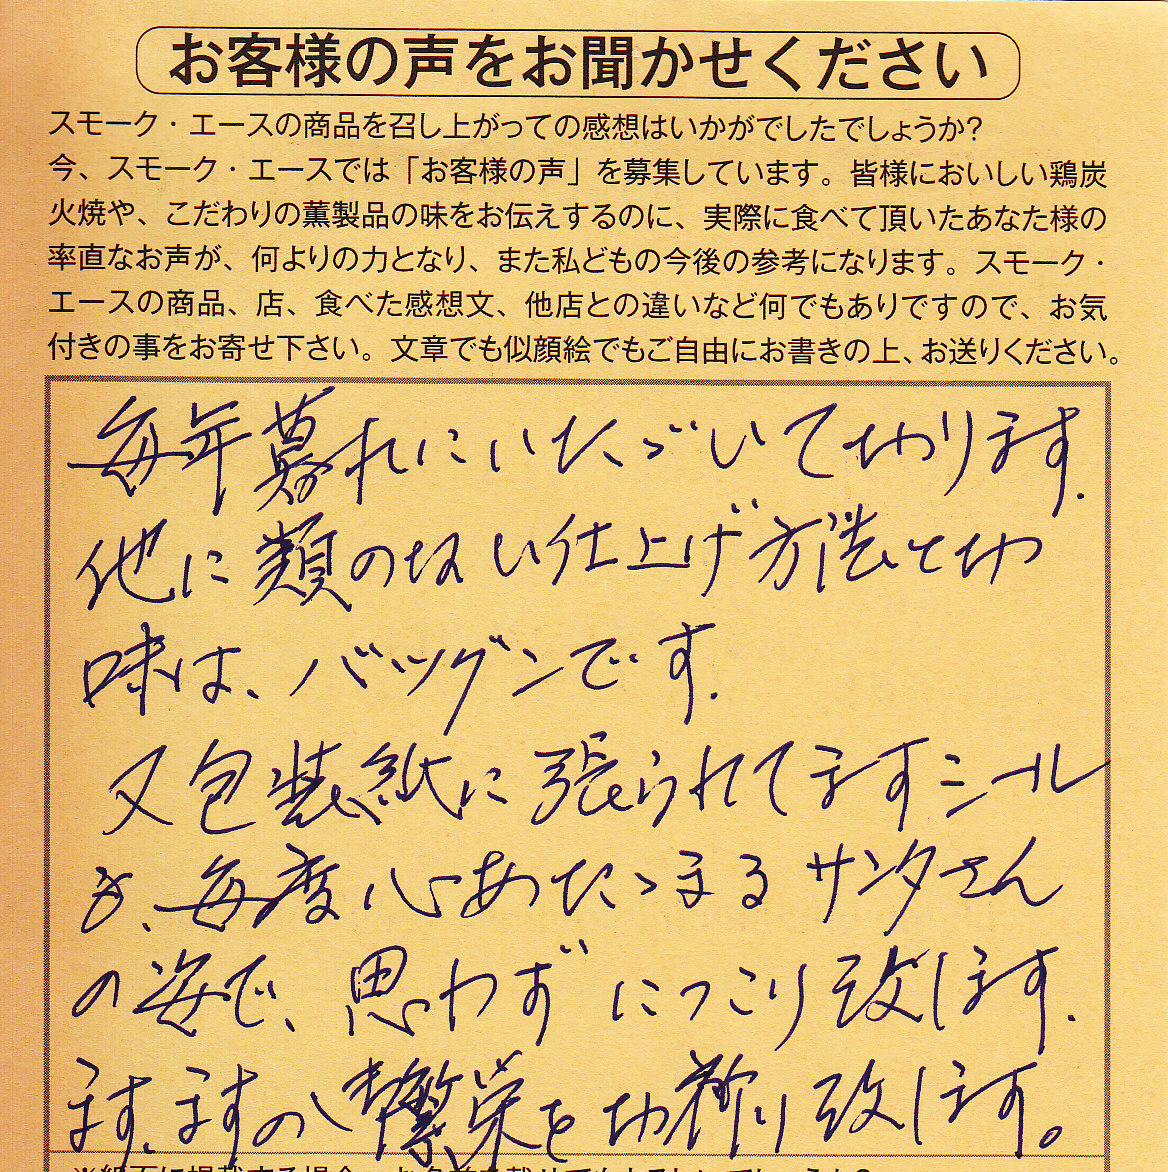 お客様の声をお聞かせください
スモーク・エースの商品を召し上がっての感想はいかがでしたでしょうか?
今、スモーク・エースでは「お客様の声」を募集しています。皆様においしい鶏炭
火焼や、こだわりの薫製品の味をお伝えするのに、実際に食べて頂いたあなた様の
率直なお声が、何よりの力となり、また私どもの今後の参考になります。スモーク・
エースの商品、店、食べた感想文、他店との違いなど何でもありですので、お気
付きの事をお寄せ下さい。文章でも似顔絵でもご自由にお書きの上、お送りください。
毎年暮れにいたゞいております.
他に類のない仕上げ方法とお
味は、バツグンです.
又包装紙に張られてますシール
も、毎度心あたゝまるサンタさん
の姿で、思わずにっこり致します.
ます、ますの繁栄をお祈り致します。
※紙面に掲載する場合、お名前を載せてもよろしいでしょうか?